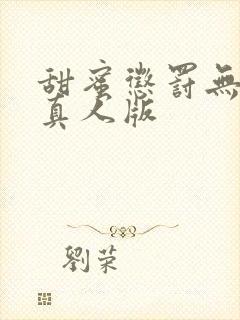 甜蜜懲罰無
真人版
劉荣